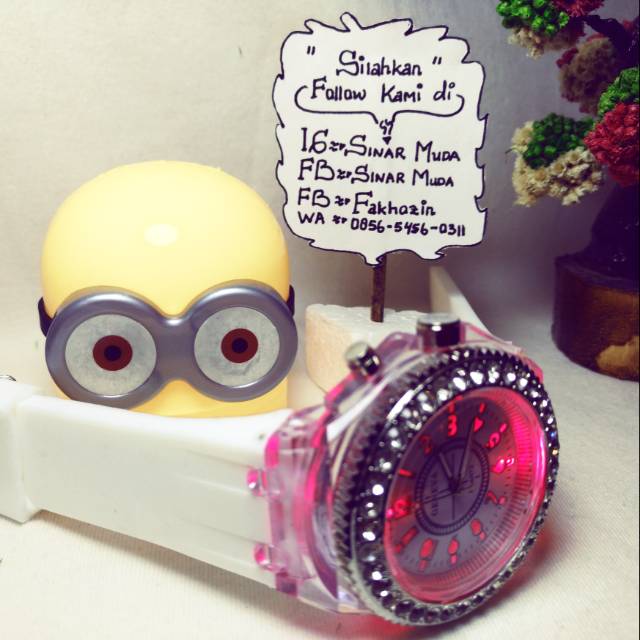 " Silahkan "
Follow Kami di
IG Sinar Muda
FB Sinar Muda
FB Fakhozin
WA 0856-5456-0311
12
2
3